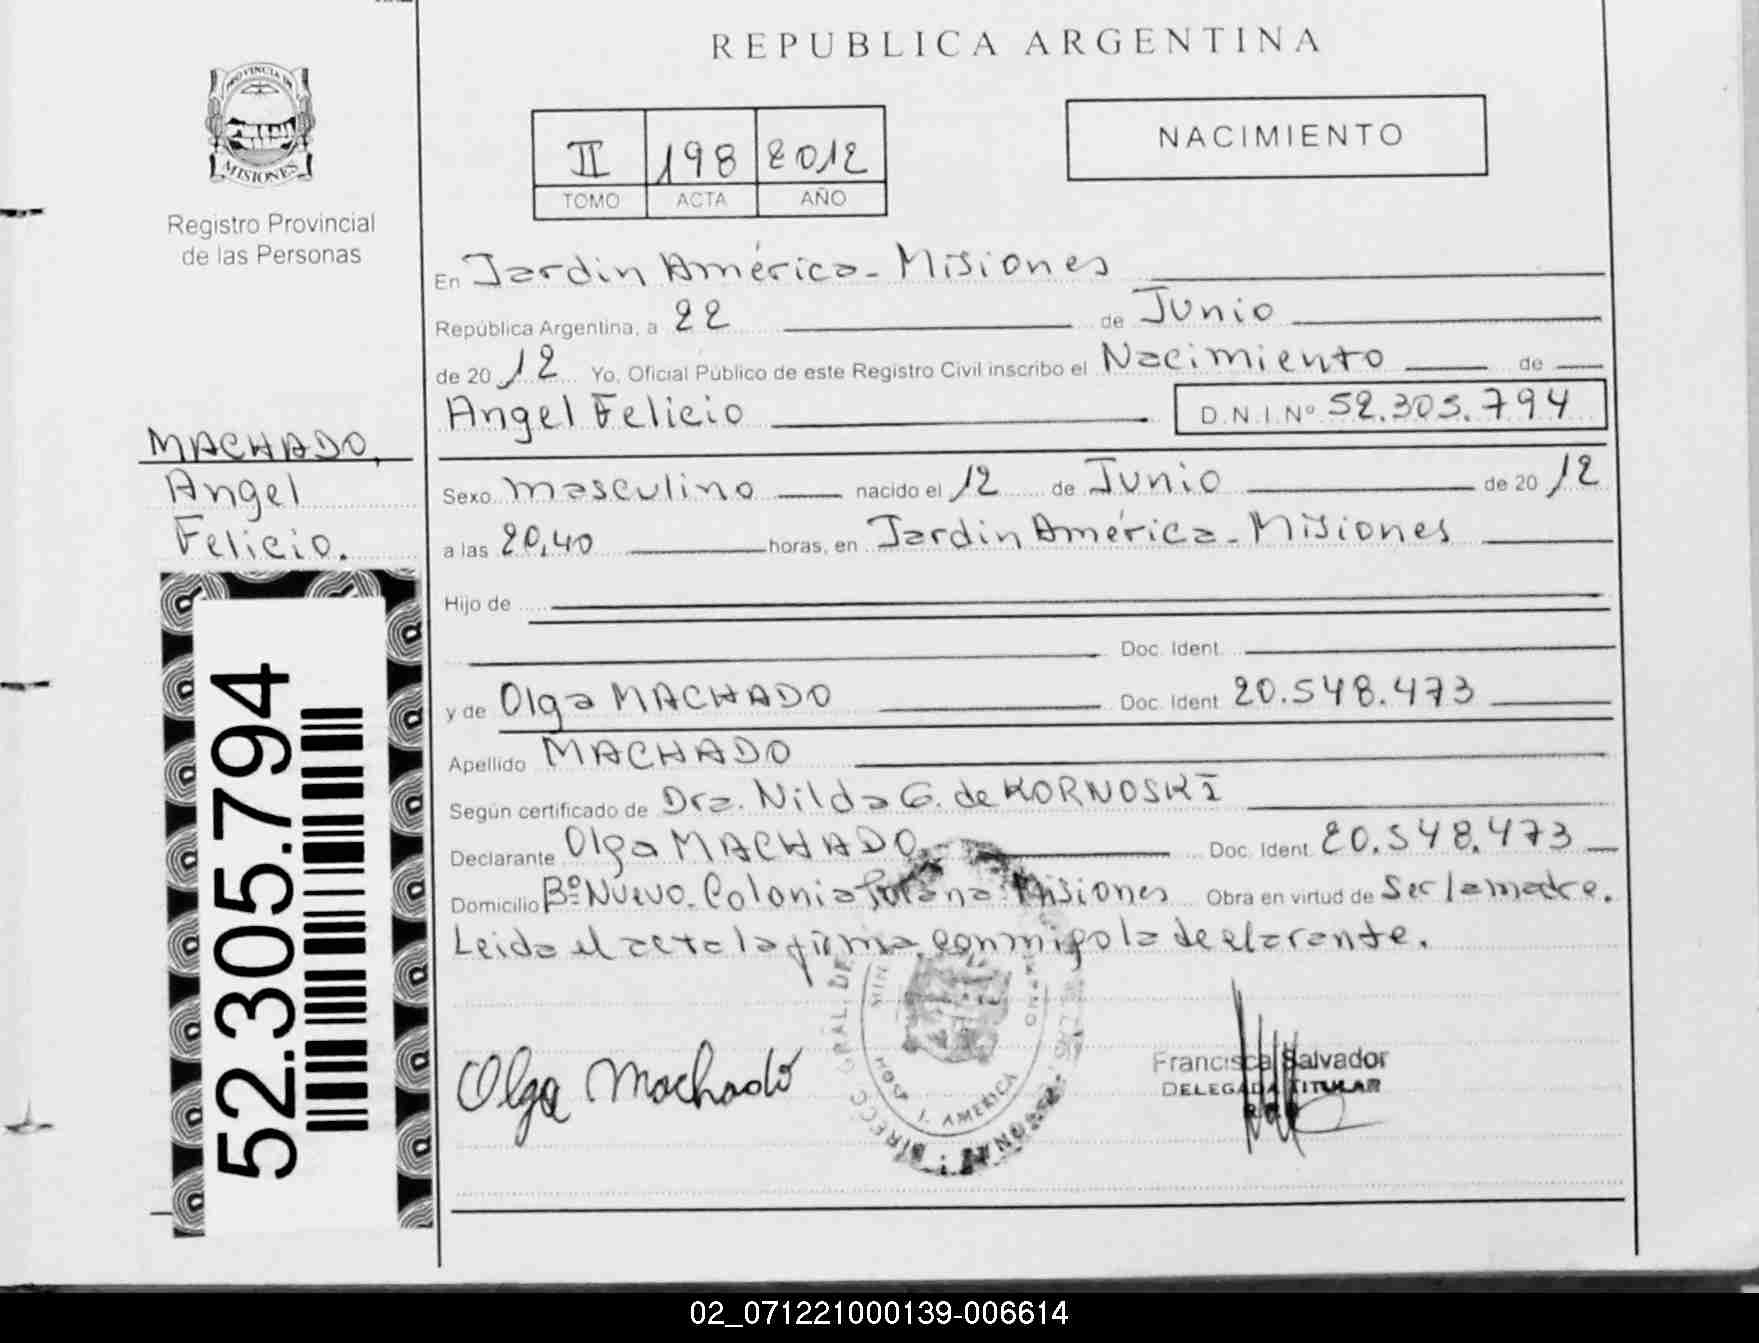 REPUBLICA ARGENTINA
PROVINCIA DE
MISIONES
Registro Provincial
de las Personas
II 198 2012
TOMO ACTA AÑO
NACIMIENTO
En Jardin América - Misiones
República Argentina, a 22 de Junio
de 2012 Yo, Oficial Público de este Registro Civil inscribo el Nacimiento de
Angel Felicio D.N.I.Nº 52.305.794
MACHADO,
Angel
Felicio.
Sexo masculino nacido el 12 de Junio de 2012
a las 20,40 horas, en Jardin América - Misiones
Hijo de
Doc. Ident.
y de Olga MACHADO Doc. Ident. 20.548.473
Apellido MACHADO
Según certificado de Dra. Nilda G. de KORNOSKI
Declarante Olga MACHADO Doc. Ident. 20.548.473
Domicilio Bº Nuevo - Colonia Misiones Obra en virtud de Ser la madre.
Leida el acta la firma conmigo la declarante.
52.305.794
Olga Machado
GRAL. DE
I. AMERICA
Francisca Salvador
DELEGADA TITULAR
02_071221000139-006614